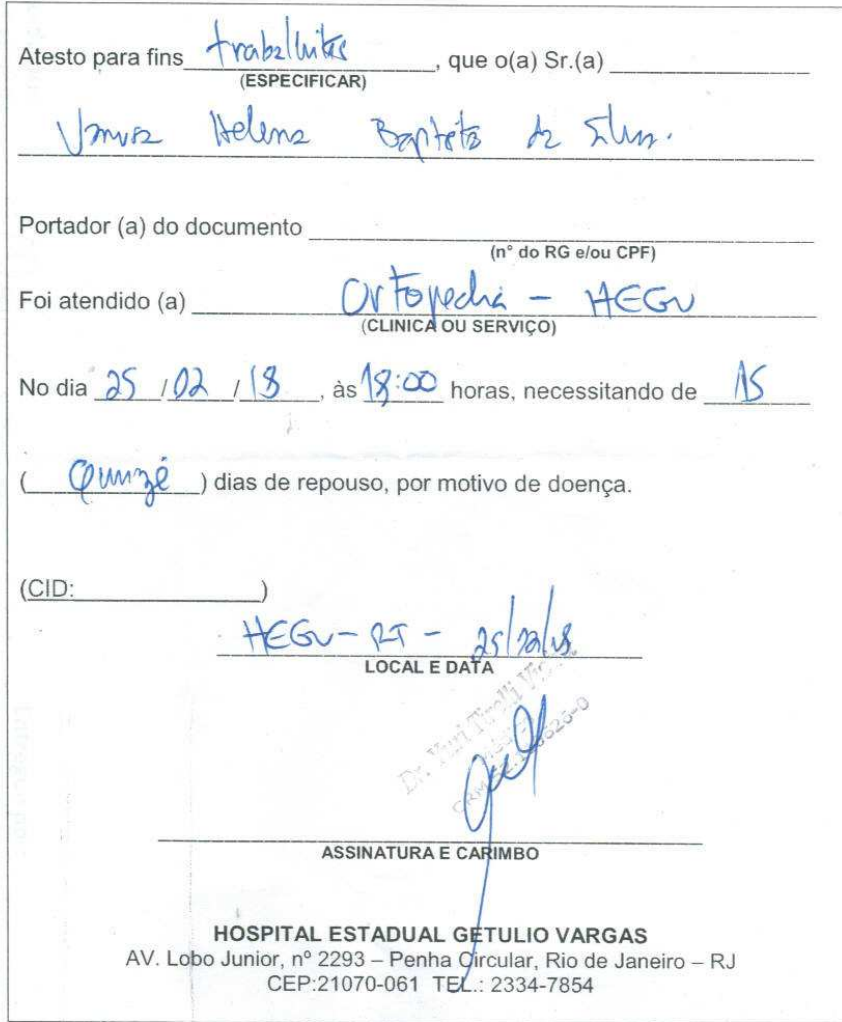 Atesto para fins trabalhistas, que o(a) Sr.(a)
(ESPECIFICAR)
Helena Baptista da Silva.
Portador (a) do documento
(nº do RG e/ou CPF)
Foi atendido (a) Ortopedia - HEGV
(CLINICA OU SERVIÇO)
No dia 25 / 02 / 18, às 18:00 horas, necessitando de 15
(Quinze) dias de repouso, por motivo de doença.
(CID: )
HEGV - RJ - 25/02/18
LOCAL E DATA
Dr. Yuri
ASSINATURA E CARIMBO
HOSPITAL ESTADUAL GETULIO VARGAS
AV. Lobo Junior, nº 2293 – Penha Circular, Rio de Janeiro – RJ
CEP:21070-061 TEL.: 2334-7854